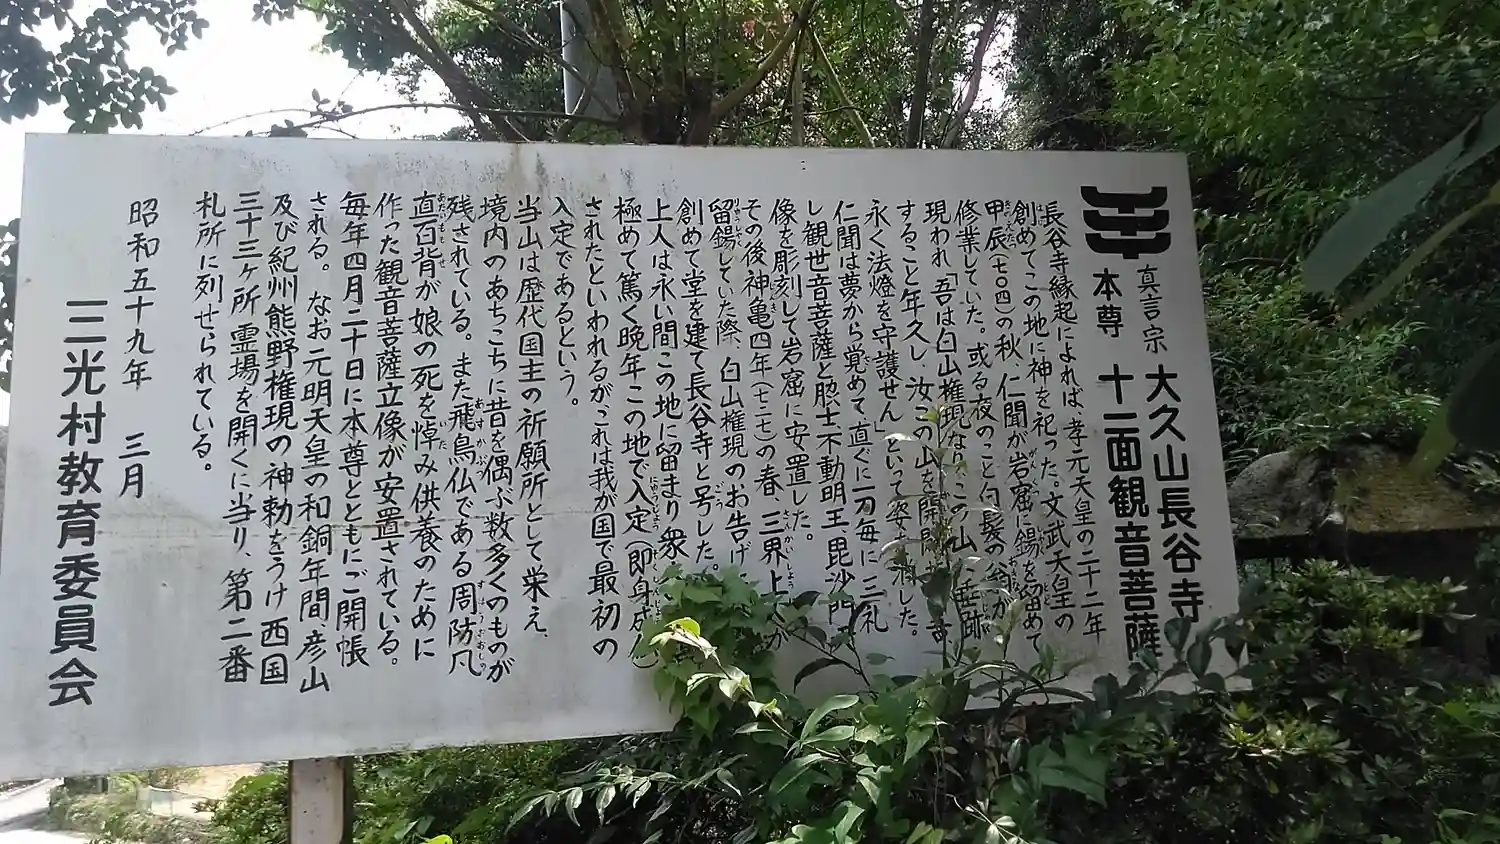 真言宗 大久山長谷寺
本尊 十一面観音菩薩
長谷寺縁起によれば、孝元天皇の二十二年
創めてこの地に神を祀った。文武天皇の
甲辰(七〇四)の秋、仁聞が岩窟に錫を留めて
修業していた。或る夜のこと白髪の翁が
現われ「吾は白山権現なり、この山に垂跡
すること年久し、汝この山を開
永く法燈を守護せん」といって姿を消した。
仁聞は夢から覚めて直ぐに一刀毎に三礼
し観世音菩薩と脱士不動明王毘沙門
像を彫刻して岩窟に安置した。
その後神亀四年(七二七)の春、三界上人が
留錫していた際、白山権現のお告げ
創めて堂を建て長谷寺と号した。
上人は永い間この地に留まり衆
極めて篤く晩年この地で入定(即身成仏)
されたといわれるがこれは我が国で最初の
入定であるという。
当山は歴代国主の祈願所として栄え、
境内のあちこちに昔を偶ぶ数多くのものが
残されている。また飛鳥仏である周防凡
直百背が娘の死を悼み供養のために
作った観音菩薩立像が安置されている。
毎年四月二十日に本尊とともにご開帳
される。なお元明天皇の和銅年間彦山
及び紀州熊野権現の神勅をうけ西国
三十三ヶ所霊場を開くに当り、第二番
札所に列せられている。
昭和五十九年 三月
三光村教育委員会